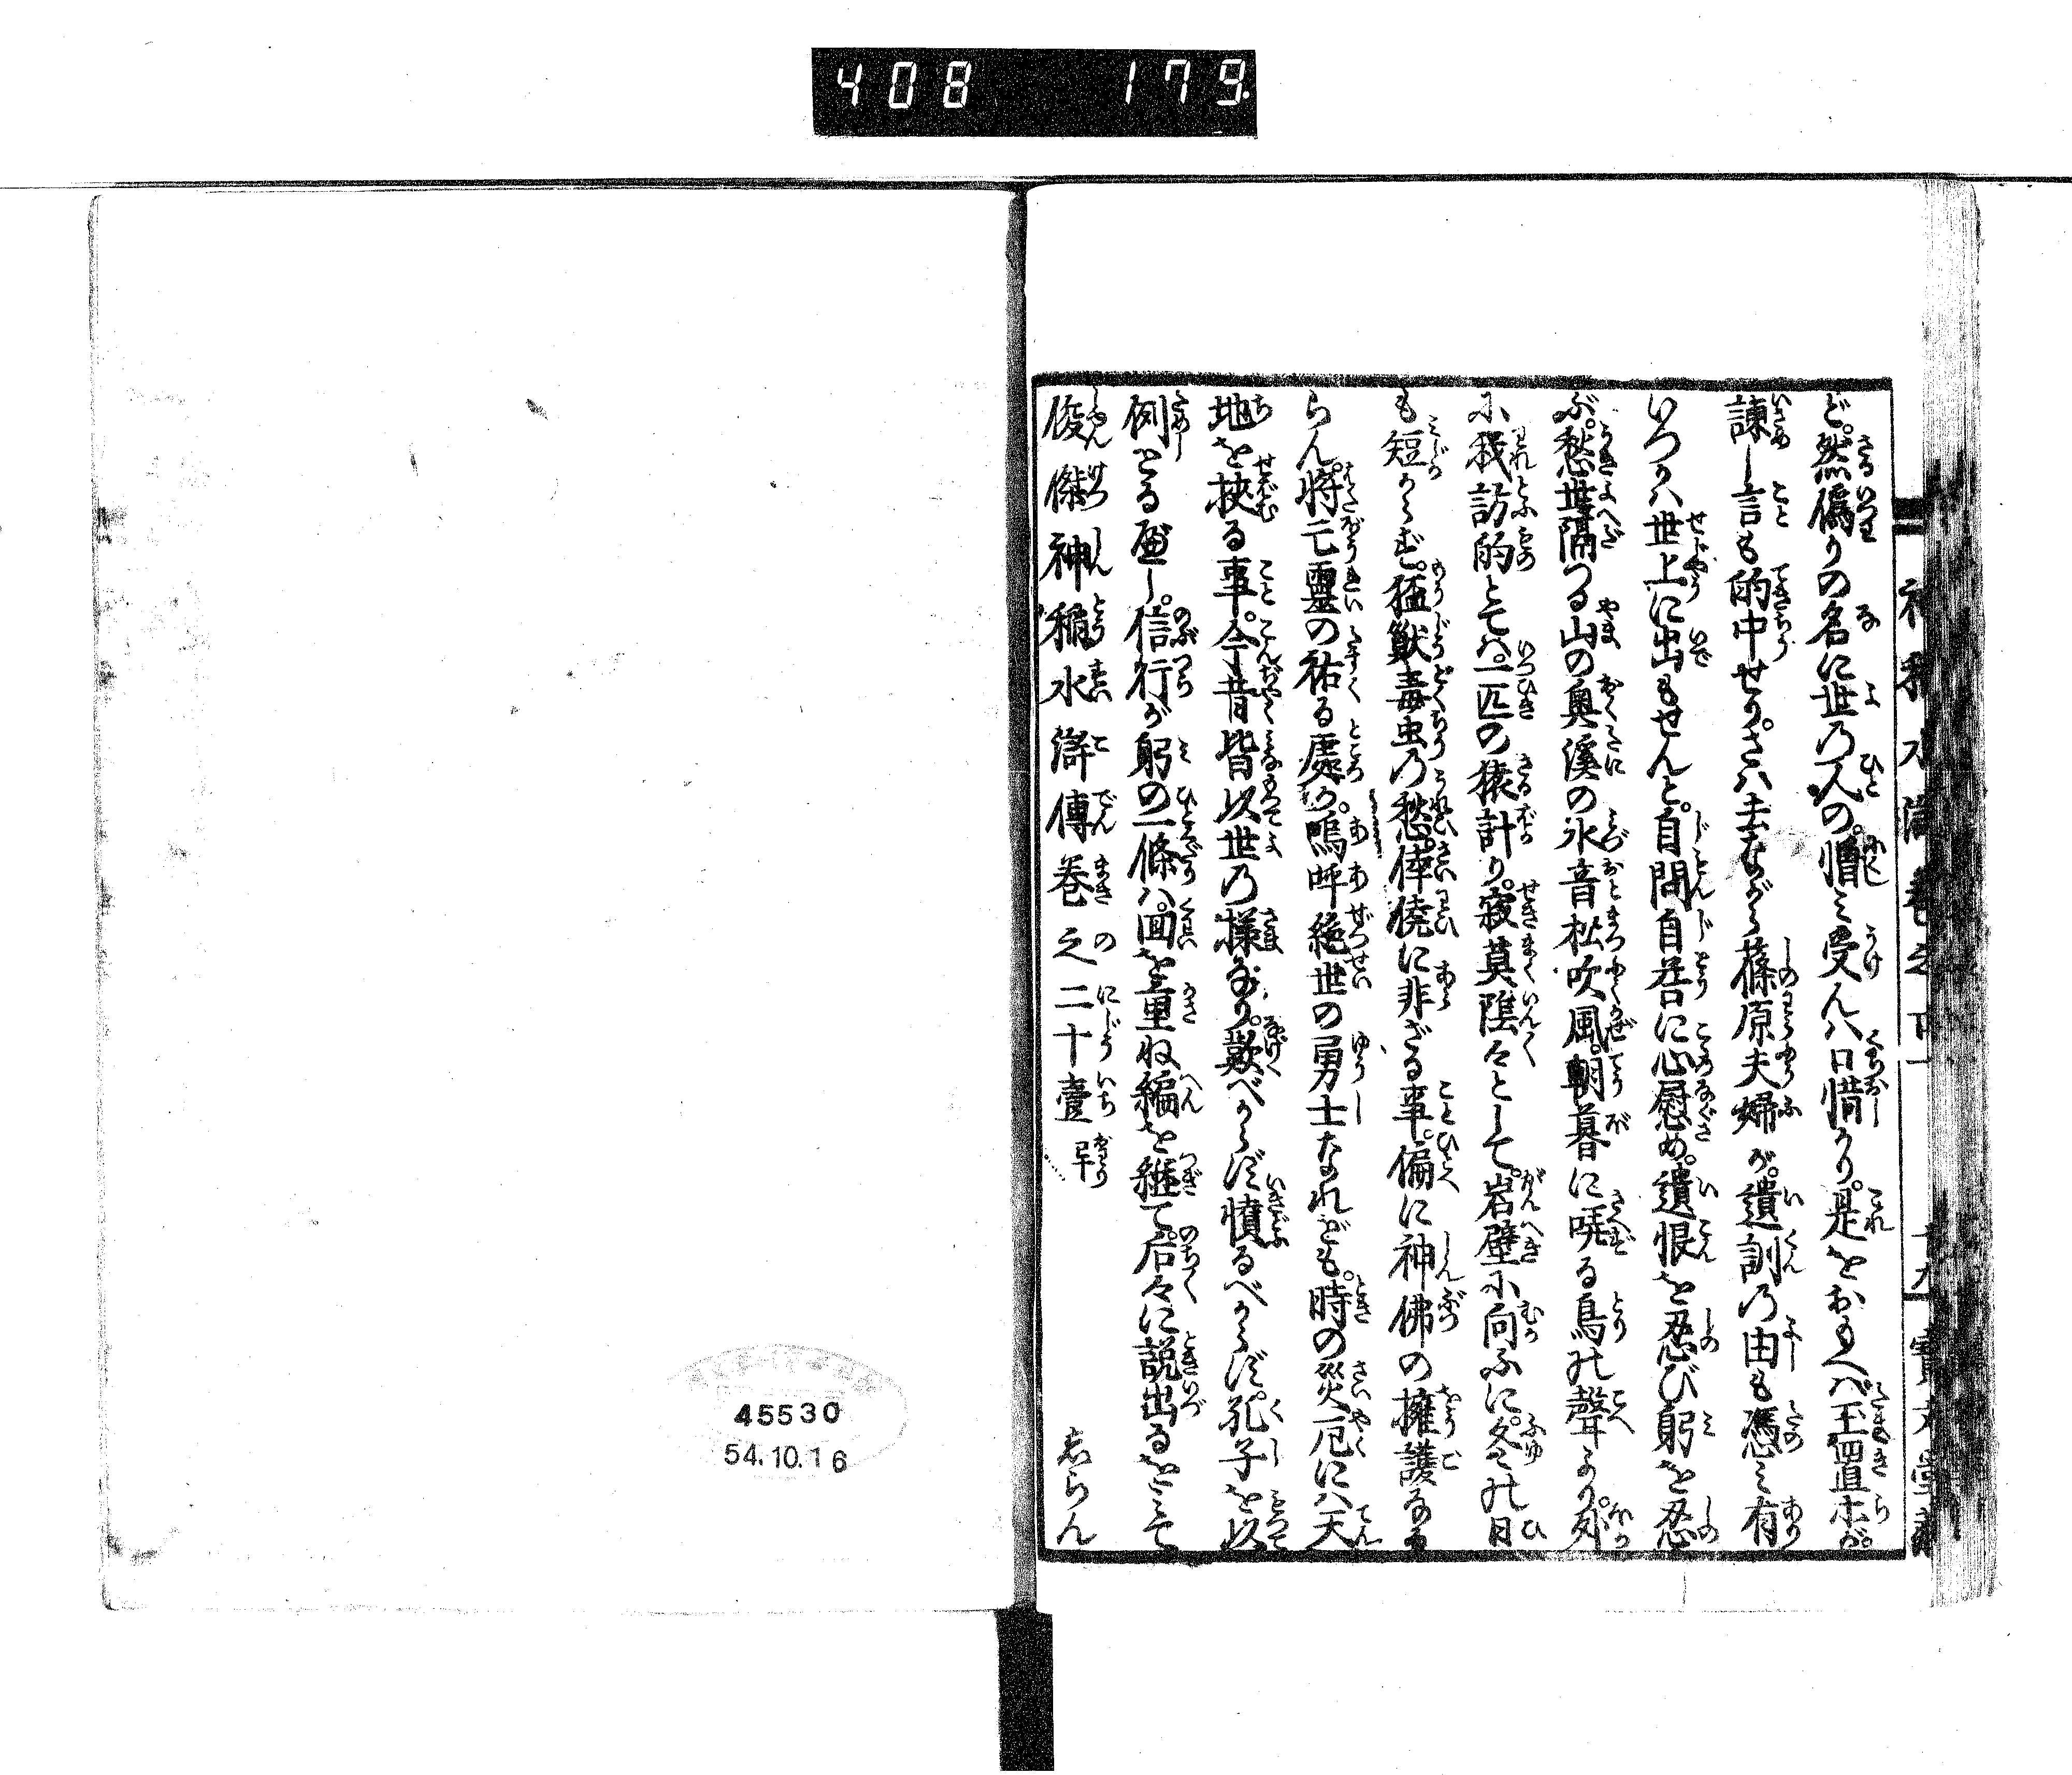 408 179
ど。然偽りの名に世乃人の。憎ミ受んハ口惜かり。是をおもへバ玉置木が。
諫し言も的中せり。さハ去ながら篠原夫婦が。遺訓乃由も憑ミ有
いつかハ世上に出もせんと。自問自答に心慰め。遺恨を忍び躬を忍
ぶ。愁世隔つる山の奥溪の氷音松吹風。朝暮に哢る鳥の聲より。外
に我訪的とてハ。一匹の猿計り。寂莫陰々として。岩壁に向ふに。冬の日
も短からず。猛獣毒虫乃愁。倖僥に非ざる事。偏に神佛の擁護なる
らん。将亡霊の祐る處か。嗚呼絶世の勇士なれども。時の災厄にハ天
地を挾る事。今昔皆以世乃様なり。歎べからず憤るべからず。孔子を以
例とる歴し。信行が躬の一條ハ。回を重ね編を継て。后々に説出るをミて
俊傑神稲水滸傳巻之二十壹 早 志らん
45530
54.10.16